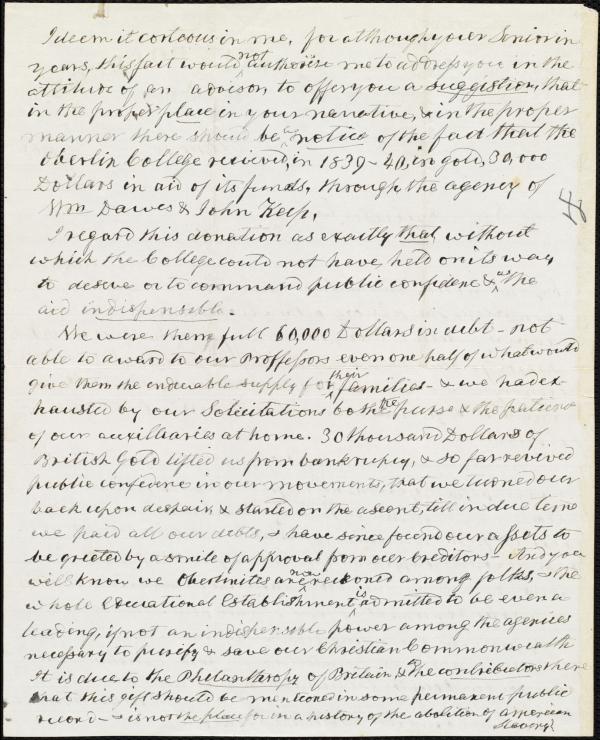 I deem it corteous in me, for although your Senior in
years, this fact would not authorise me to address you in the
attitude of an advisor to offer you a suggestion, that
in the proper place in your narrative, & in the proper
manner there should be a notice of the fact that the
Oberlin College recieved, in 1839-40, in gold, 30,000
Dollars in aid of its funds, through the agency of
Wm Dawes & John Keep.
I regard this donation as exactly that, without
which the College could not have held on its way
to deserve or to command public confidence & as the
aid indispensible.
We were then full 60,000 Dollars in debt - not
able to award to our Proffessors even one half of what would
give them the endurable supply for their families - & we had ex-
hausted by our Solicitations both the purse & the patience
of our auxilliaries at home. 30 thousand Dollars of
British Gold lifted us from bankruptcy, & so far revived
public confidence in our movements, that we turned our
back upon despair & started on the ascent, till in due time
we paid all our debts, & have since found our assets to
be greeted by a smile of approval from our Creditors - And you
will know we Oberlinites are now reckoned among folks, & the
whole Educational Establishment is admitted to be even a
leading, if not an indispensible power among the agencies
necessary to purify & save our Christian Commonwealth
It is due to the Philanthropy of Britain & the contributors there
that this gift should be mentioned in some permanent public
record - & is not the place for in a history of the abolition of American
Slavery?